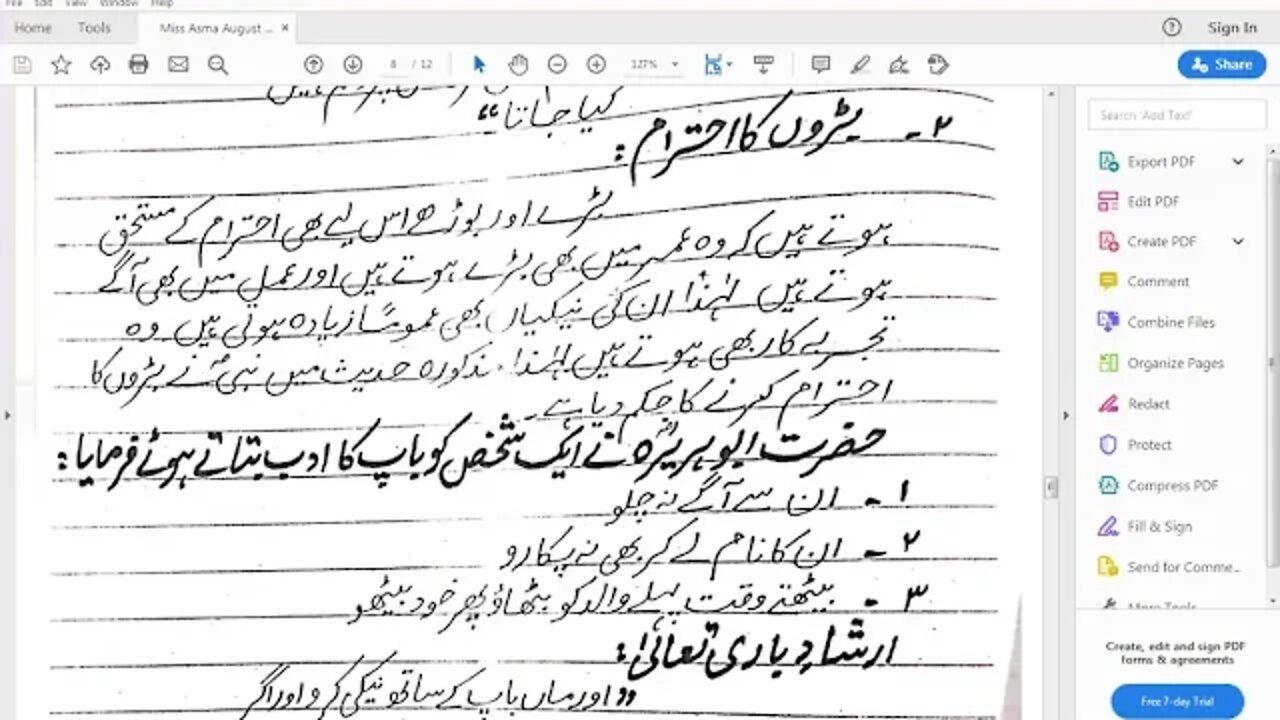 File Edit View Window Help
Home Tools Miss Asma August ... ×
Sign In
8 / 12 127% Share
کیا جاتا“
۲۔ بڑوں کا احترام :
بڑے اور بوڑھے اس لیے بھی احترام کے مستحق
ہوتے ہیں کہ وہ عمر میں بھی بڑے ہوتے ہیں اور عمل میں بھی آگے
ہوتے ہیں لہٰذا ان کی نیکیاں بھی عموماً زیادہ ہوتی ہیں۔ وہ
تجربہ کار بھی ہوتے ہیں لہٰذا مذکورہ حدیث میں نبیؐ نے بڑوں کا
احترام کرنے کا حکم دیا ہے۔
حضرت ابو ہریرہؓ نے ایک شخص کو باپ کا ادب بتاتے ہوئے فرمایا :
۱۔ ان سے آگے نہ چلو
۲۔ ان کا نام لے کر بھی نہ پکارو
۳۔ بیٹھتے وقت پہلے والد کو بٹھاؤ پھر خود بیٹھو
ارشادِ باری تعالیٰ :
”اور ماں باپ کے ساتھ نیکی کرو اور اگر
Search 'Add Text'
Export PDF
Edit PDF
Create PDF
Comment
Combine Files
Organize Pages
Redact
Protect
Compress PDF
Fill & Sign
Send for Comme...
More Tools
Create, edit and sign PDF
forms & agreements
Free 7-day Trial